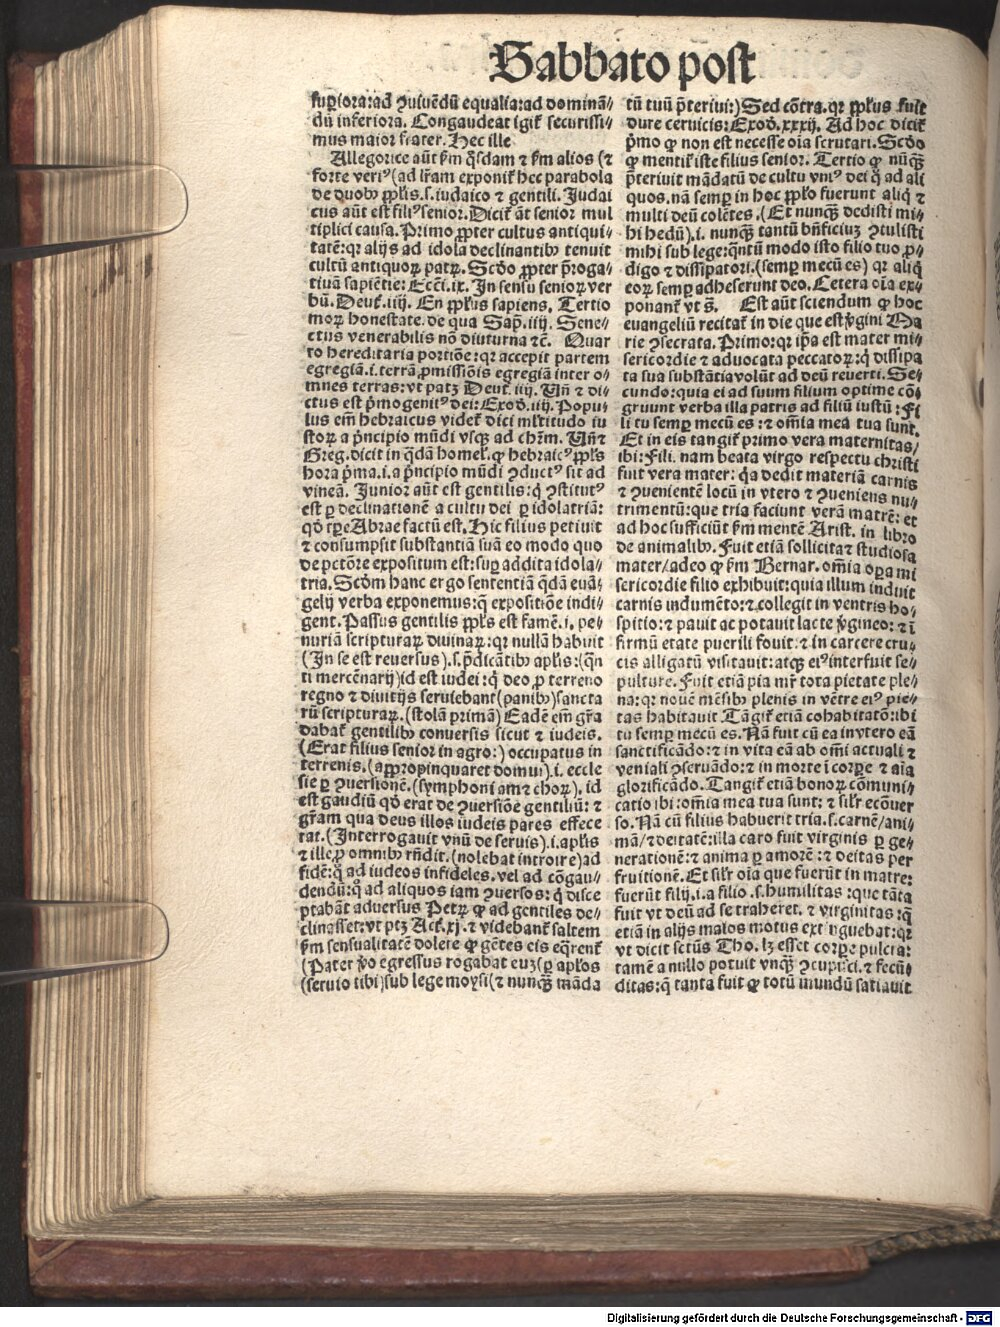 Sabbato post
sup̲iora:ad ꝯuiuēdū equalia:ad dominā⸗
dū inferiora. Congaudeat igit̄ securissi⸗
mus maior frater. Hec ille
Allegorice aūt ẜm q̄sdam ⁊ ẜm alios (⁊
forte veriꝰ (ad lr̄am exponit̄ hec parabola
de duobꝫ ppl̄is.s.iudaico ⁊ gentili. Judai
cus aūt est filiꝰ senior. Dicit̄ āt senior mul
tiplici causa. Primo ꝓpter cultus antiqui⸗
tatē:qꝛ alijs ad idola declinantibꝫ tenuit
cultū antiquoꝝ patꝝ. Scd̄o ꝓpter p̄roga⸗
tiuā sapiētie: Ecc̄i.ix. In sensu senioꝝ ver
bū. Deut̄.iiij. En ppl̄us sapiens. Tertio
moꝝ honestate. de qua Sap̄.iiij. Sene⸗
ctus venerabilis nō diuturna ⁊c̄. Quar
to hereditaria portiōe:qꝛ accepit partem
egregiā.i.terrā ꝓmissiōis egregiā inter o⸗
mnes terras:vt patꝫ Deut̄.iij. Vn̄ ⁊ di⸗
ctus est p̄mogenitꝰ dei: Exod̄.iiij. Popu⸗
lus em̄ hebraicus videt̄ dici ml̄titudo iu
stoꝝ a p̄ncipio mūdi vsqꝫ ad chr̄m. Vn̄⁊
Greg. dicit in q̄dā homel̄. ꝙ hebraicꝰ ppl̄s
hora p̄ma.i.a p̄ncipio mūdi ꝯductꝰ sit ad
vineā. Junior aūt est gentilis:q̄ ꝯstitutꝰ
est ꝑ declinationē a cultu dei ꝑ idolatriā:
qd̄ tp̄e Abrae factū est. Hic filius petiuit
⁊ consumpsit substantiā suā eo modo quo
de pctōre expositum est:sup̲ addita idola⸗
tria. Scd̄m hanc ergo sententiā q̄dā euā⸗
gelij verba exponemus:q̄ expositiōe indi⸗
gent. Passus gentilis ppl̄s est famē.i.pe⸗
nuriā scripturaꝝ diuinaꝝ:qꝛ nullā habuit
(In se est reuersus).s.p̄dicātibꝫ apl̄is:(q̄n
ti mercēnarij)id est iudei:q̄ deo ꝓ terreno
regno ⁊ diuitijs seruiebant(panibꝫ)sancta
rū scripturaꝝ.(stolā primā) Eadē em̄ gr̄a
dabat̄ gentilibꝫ conuersis sicut ⁊ iudeis.
(Erat filius senior in agro:) occupatus in
terrenis.(appropinquaret domui).i.eccle
sie ꝑ ꝯuersionē.(symphoniam ⁊ choꝝ). id
est gaudiū qd̄ erat de ꝯuersiōe gentiliū: ⁊
gr̄am qua deus illos iudeis pares effece
rat.(Interrogauit vnū de seruis).i.apl̄is
⁊ ille ꝓ omnibꝫ rn̄dit.(nolebat introire)ad
fidē:q̊ ad iudeos infideles.vel ad cōgau⸗
dendū:q̊ ad aliquos iam ꝯuersos:q̄ disce
ptabāt aduersus Petꝝ ꝙ ad gentiles de⸗
clinasset:vt ptꝫ Act̄.xj.⁊ videbant̄ saltem
ẜm sensualitatē dolere ꝙ gētes eis eq̄rent̄
(Pater v̊o egressus rogabat eū:)ꝑ apl̄os
(seruio tibi)sub lege moysi(⁊ nunqꝫ̄ māda
tū tuū p̄teriui:) Sed cōtra. qꝛ ppl̄us fuit
dure ceruicis: Exod̄.xxxij. Ad hoc dicit̄
p̄mo ꝙ non est necesse oīa scrutari. Scd̄o
ꝙ mentit̄ iste filius senior. Tertio ꝙ nūqꝫ̄
p̄teriuit mādatū de cultu vniꝰ dei q̊ ad ali
quos.nā semp̲ in hoc ppl̄o fuerunt aliq̄ ⁊
multi deū colētes.(Et nunqꝫ̄ dedisti mi⸗
hi hedū).i. nunqꝫ̄ tantū bn̄ficiuꝫ ꝯtulisti
mihi sub lege:q̄ntū modo isto filio tuo ꝓ⸗
digo ⁊ dissipatori.(semp̲ mecū es) qꝛ aliq̄
eoꝝ semp̲ adheserunt deo. Cetera oīa ex⸗
ponant̄ vt s̄. Est aūt sciendum ꝙ hoc
euangeliū recitat̄ in die que est v̄gini Ma
rie ꝯsecrata. Primo:qꝛ ip̄a est mater mi⸗
sericordie ⁊ aduocata peccatoꝝ:q̄ dissipa
ta sua substātia volūt ad deū reuerti. Se⸗
cundo:quia ei ad suum filium optime cō⸗
gruunt verba illa patris ad filiū iustū: Fi
li tu semp̲ mecū es:⁊ om̄ia mea tua sunt.
Et in eis tangit̄ primo vera maternitas/
ibi: Fili. nam beata virgo respectu christi
fuit vera mater: q̄a dedit materiā carnis
⁊ ꝯuenientē locū in vtero ⁊ ꝯueniens nu⸗
trimentū:que tria faciunt verā matrē: et
ad hoc sufficiūt ẜm mentē Arist. in libro
de animalibꝫ. Fuit etiā sollicita⁊ studiosa
mater/adeo ꝙ ẜm Bernar. om̄ia op̲a mi
sericordie filio exhibuit:quia illum induit
carnis indumēto:⁊ collegit in ventris ho⸗
spitio:⁊ pauit ac potauit lacte v̄gineo: ⁊ ī
firmū etate puerili fouit:⁊ in carcere cru⸗
cis alligatū visitauit:atqꝫ eiꝰ interfuit se⸗
pulture. Fuit etiā pia mr̄ tota pietate ple⸗
na:qꝛ nouē mēsibꝫ plenis in vētre eiꝰ pie⸗
tas habitauit. Tāgit̄ etiā cohabitatō:ibi
tu semp̲ mecū es. Nā fuit cū ea in vtero eā
sanctificādo:⁊ in vita eā ab om̄i actuali ⁊
veniali ꝯseruādo:⁊ in morte ī corꝑe ⁊ aīa
glorificādo. Tangit̄ etiā bonoꝝ cōmuni⸗
catio ibi:om̄ia mea tua sunt: ⁊ sil̄r ecōuer
so. Nā cū filius habuerit tria.s.carnē/ani⸗
mā/⁊ deitatē:illa caro fuit virginis ꝑ ge⸗
nerationē:⁊ anima ꝑ amorē:⁊ deitas per
fruitionē. Et sil̄r oīa que fuerūt in matre:
fuerūt filij.i.a filio.s.humilitas:que tāta
fuit vt deū ad se traheret. ⁊ virginitas:q̄
etiā in alijs malos motus extinguebat:qꝛ
vt dicit sctūs Tho. lꝫ esset corꝑe pulcra:
tamē a nullo potuit vnqꝫ̄ ꝯcupisci.⁊ fecū⸗
ditas:q̄ tanta fuit ꝙ totū mundū satiauit
Digitalisierung gefördert durch die Deutsche Forschungsgemeinschaft - DFG